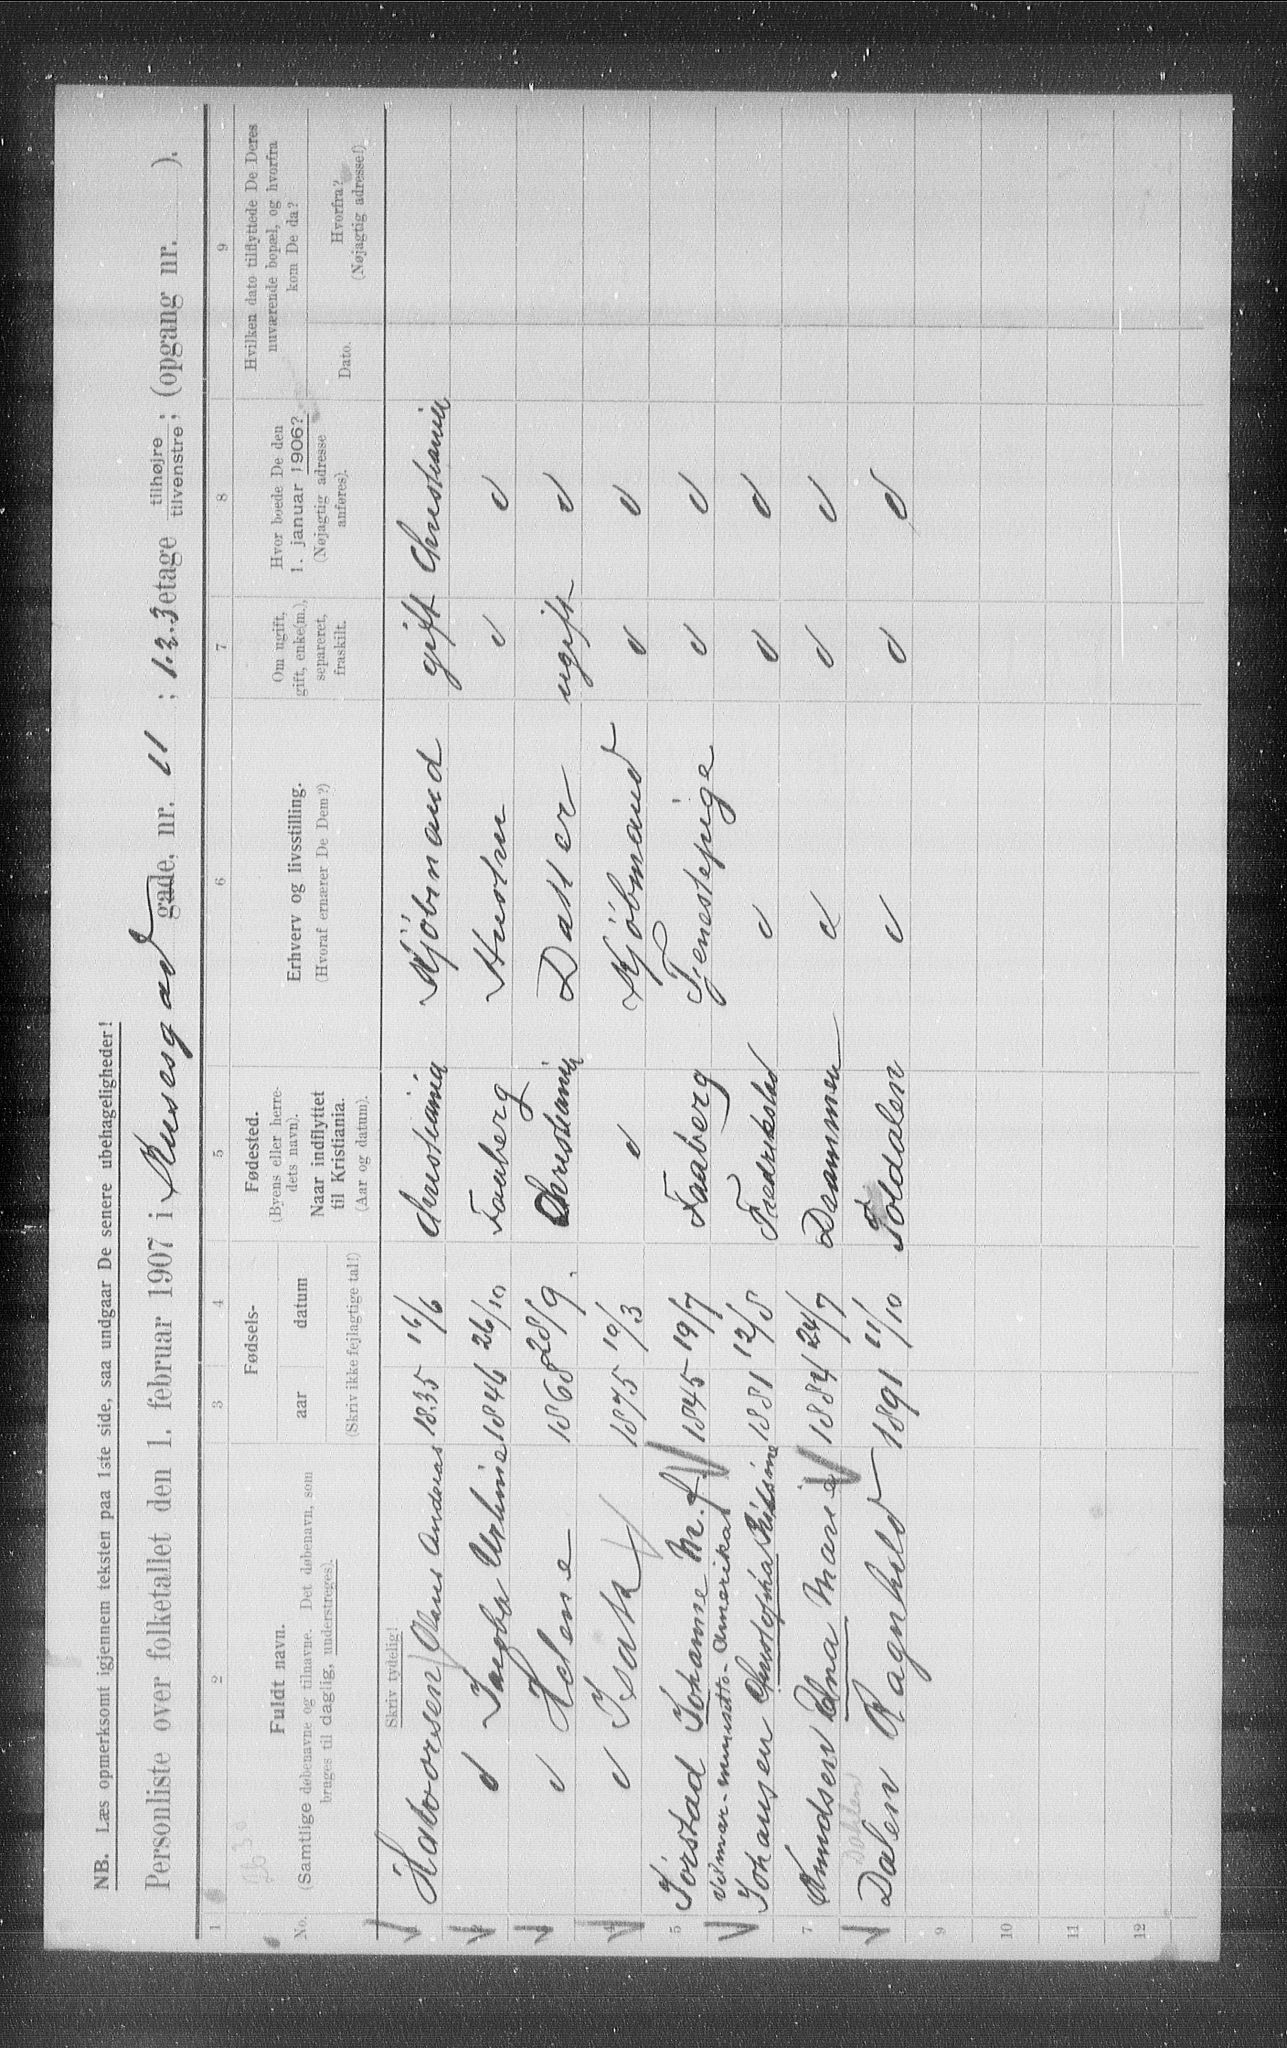 NB. Læs opmerksomt igjennem teksten paa 1ste side, saa undgaar De senere ubehageligheder!
Personliste over folketallet den 1. februar 1907 i Kruesgad gade, nr. 11 ; 1.2.3 etage tilhøjre tilvenstre ; (opgang nr. ).
1 2 3 4 5 6 7 8 9
No. Fuldt navn. (Samtlige døbenavne og tilnavne. Det døbenavn, som bruges til daglig, understreges). Skriv tydelig!
Fødsels- aar datum (Skriv ikke fejlagtige tal!)
Fødested. (Byens eller herredets navn). Naar indflyttet til Kristiania. (Aar og datum).
Erhverv og livsstilling. (Hvoraf ernærer De Dem?)
Om ugift, gift, enke(m.), separeret, fraskilt.
Hvor boede De den 1. januar 1906? (Nøjagtig adresse anføres).
Hvilken dato tilflyttede De Deres nuværende bopæl, og hvorfra kom De da?
Dato. Hvorfra? (Nøjagtig adresse!)
Halvorsen Olaus Andreas 1835 16/6 Christiania Kjöbmand gift Christiania
2 d 1846 26/10 Faaberg Hustru d d
3 d Helene 1868 28/9 Christiania Datter ugift d
4 d Isak 1875 19/3 d Kjöbmand d d
5 Törstad Johanne M. f. 1845 19/7 Faaberg Tjenestepige d d
Vilmar-Minnisotta-Amerika
Johansen 1881 12/8 Fredrikstad d d d
7. Knudsen Marie 1884 24/7 Drammen d d d
Dahlen
Dalen Ragnhild 1891 11/10 Foldalen d d d
9
10
11
12